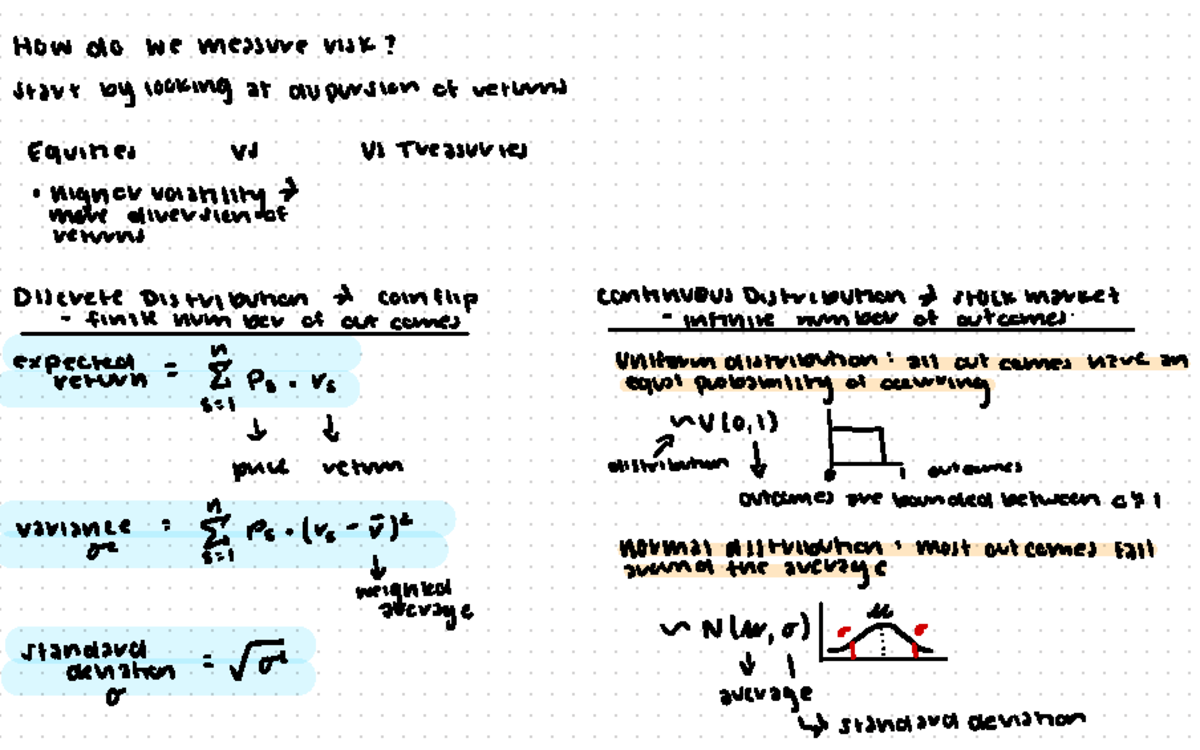 How do we measure risk?
start by looking at dispersion of returns
Equities vs vs Treasuries
• higher volatility →
more diversion of
returns
Discrete Distribution → coin flip
- finite number of outcomes
expected return = n Σ s=1 Ps · rs
↓ ↓
price return
variance σ² = n Σ s=1 Ps · (rs - r̄)²
↓
weighted
average
standard deviation σ = √σ²
continuous Distribution → stock market
- infinite number of outcomes
Uniform distribution: all outcomes have an
equal probability of occurring
~U(0,1)
distribution ↓ 0 1 outcomes
outcomes are bounded between 0 & 1
normal distribution: most outcomes fall
around the average
~ N(μ, σ) σ μ σ
↓
average
↳ standard deviation